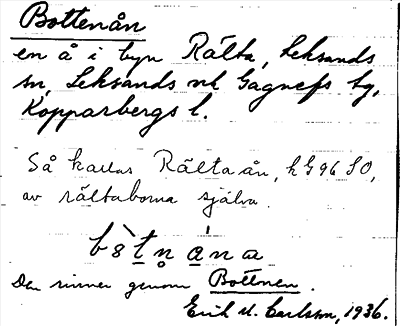 Bottenån
en å i byn Rälta, Leksands
sn, Leksands och Gagnefs tg,
Kopparbergs l.
Så kallas Rälta ån, h G 96 SO,
av rältaborna själva.
Den rinner genom Bottnen.
Erik M. Carlsson, 1936.